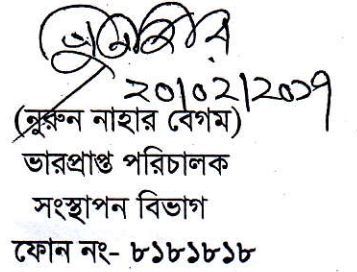 ২০/০২/২০১৭
(নুরুন নাহার বেগম)
ভারপ্রাপ্ত পরিচালক
সংস্থাপন বিভাগ
ফোন নং- ৮১৮১৮১৮